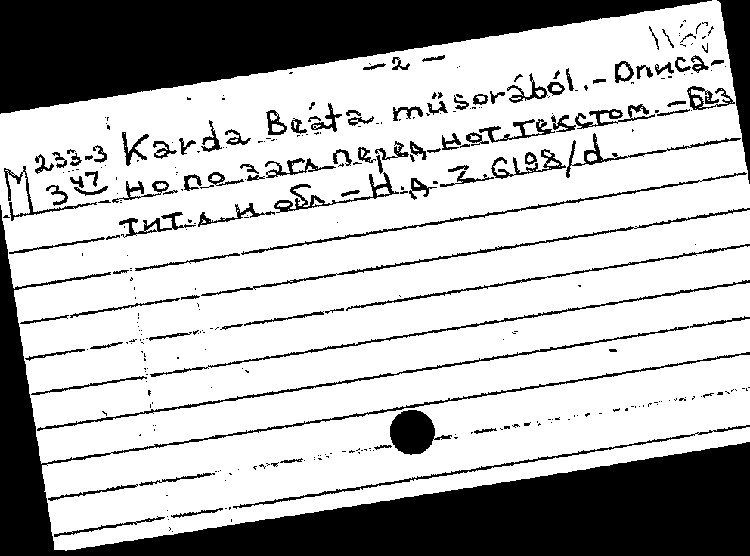 1168
– 2 –
М 233-3 Karda Beáta műsorából. – Описа-
3 47 но по загл перед нот. текстом. – Без
тит. л и обл. – Н.д. Z.6198/d.